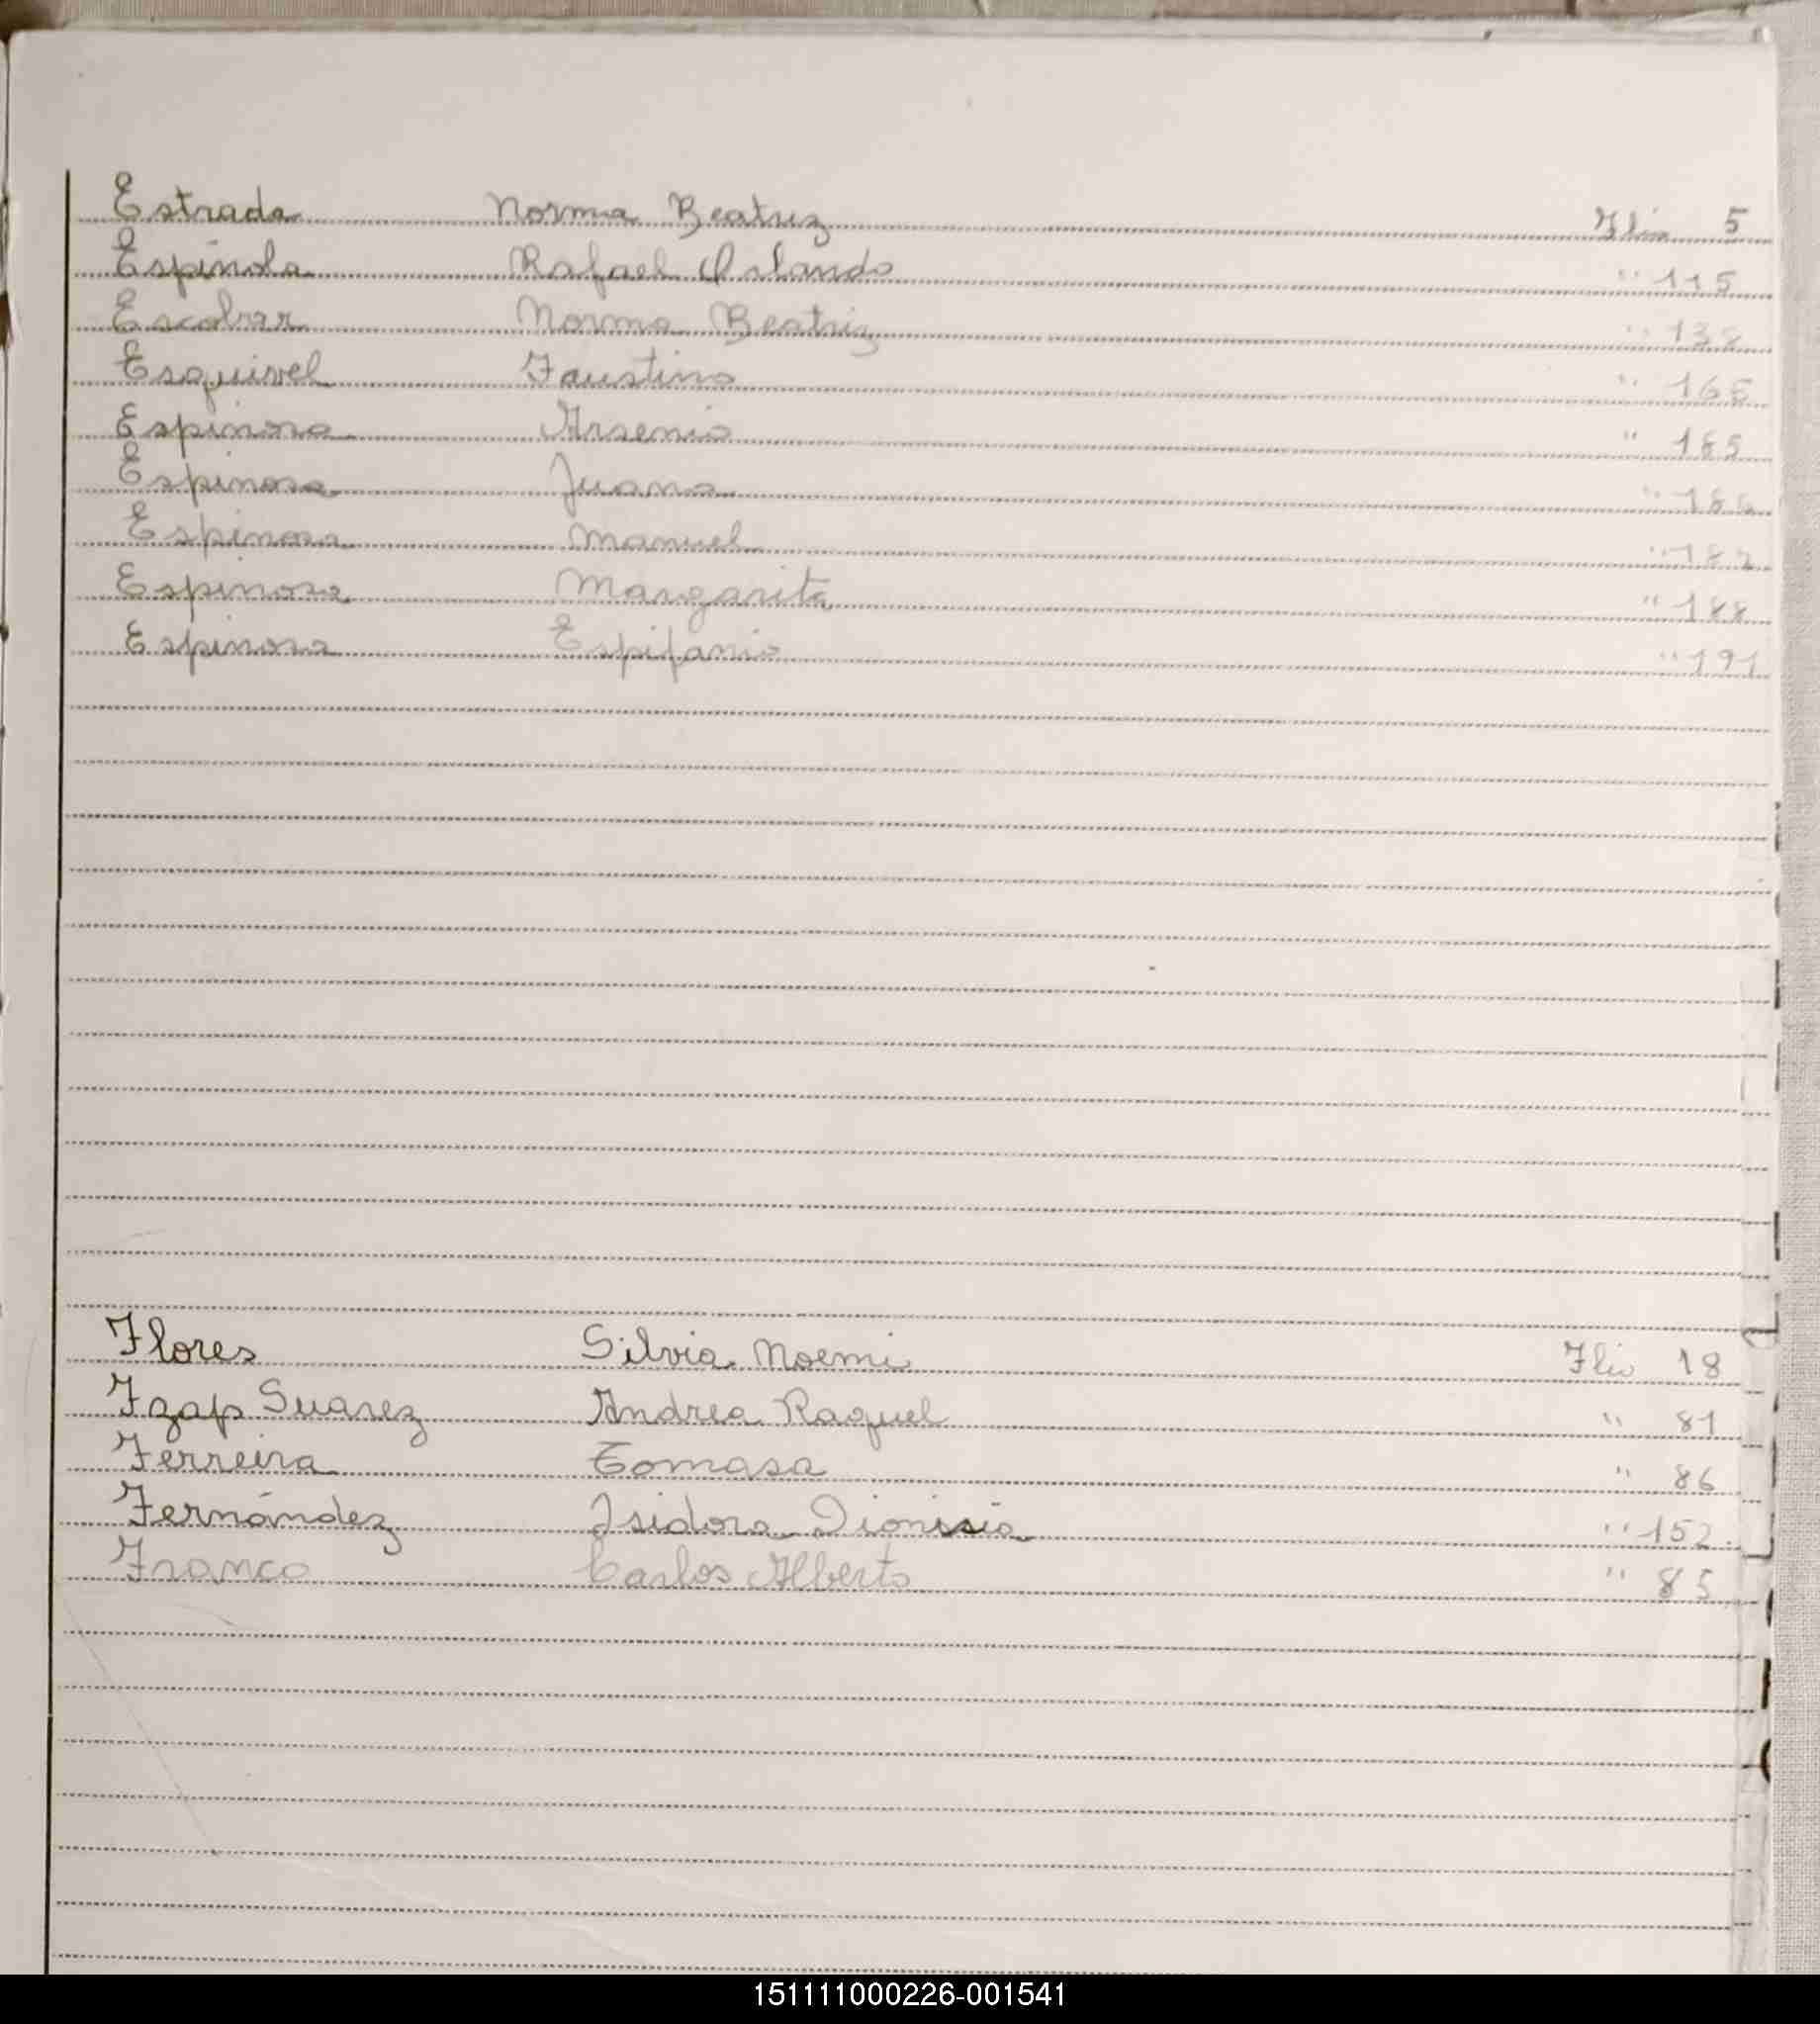 Estrada Norma Beatriz Flio 5
Espínola Rafael Orlando " 115
Escobar Norma Beatriz " 138
Esquivel Faustino "
Espinosa Arsenio " 185
Espinosa Juana " 186
Espinosa Manuel "
Espinosa Margarita " 188
Espinosa Espifanio " 191
Flores Silvia Noemi Flio 18
Fzap Suarez Andrea Raquel " 81
Ferreira Tomasa " 86
Fernández Isidora Dionisia " 152
Franco Carlos Alberto " 85
151111000226-001541